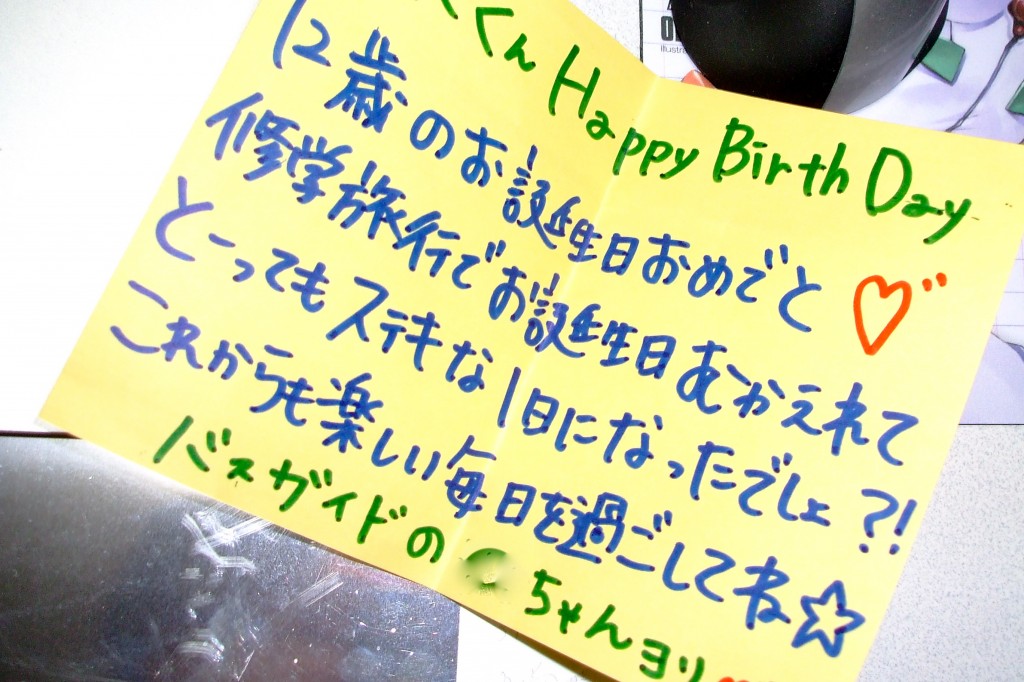 くん Happy Birth Day
12歳のお誕生日おめでと♡
修学旅行でお誕生日むかえれて
とってもステキな1日になったでしょ?!
これからも楽しい毎日を過ごしてね☆
バスガイドの ちゃんヨリ